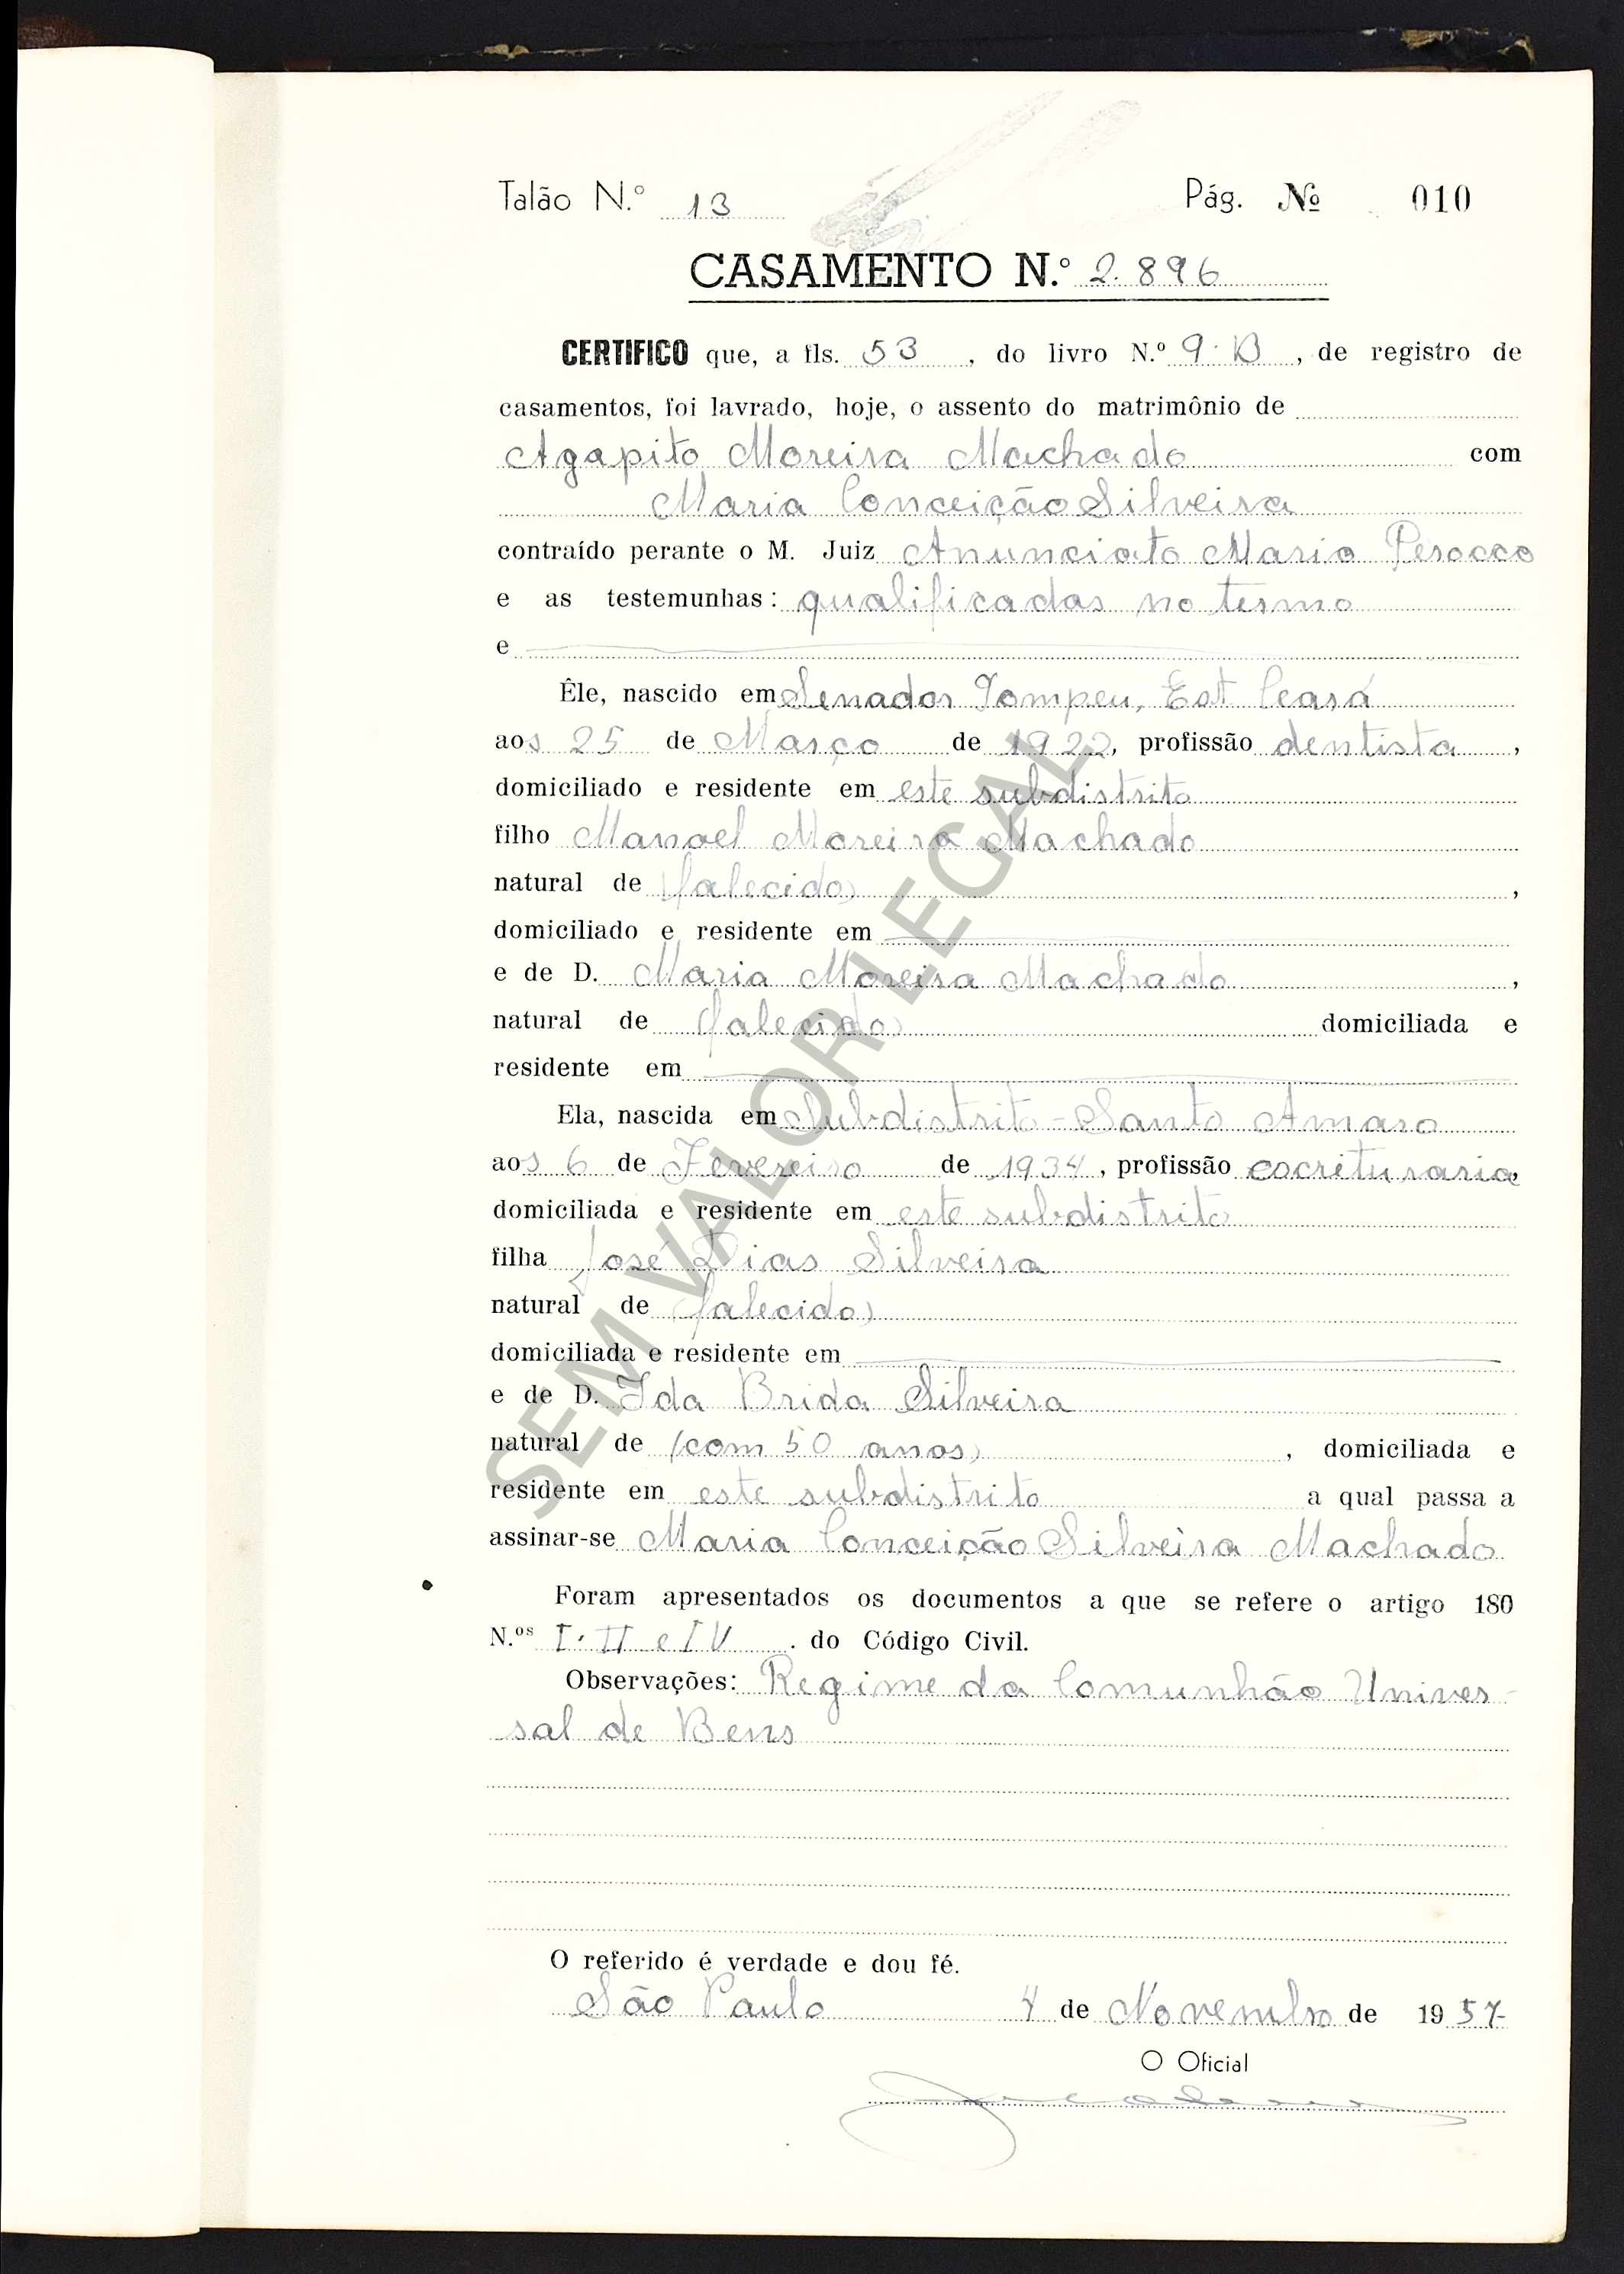 Talão N.º 13 Pág. Nº 010
CASAMENTO N.º 2.896
CERTIFICO que, a fls. 53, do livro N.º 9-B, de registro de
casamentos, foi lavrado, hoje, o assento do matrimônio de
Agapito Moreira Machado com
Maria Conceição Silveira
contraído perante o M. Juiz Anunciato Mario Perocco
e as testemunhas: qualificadas no termo
e
Êle, nascido em Senador Pompeu, Est Ceará
aos 25 de Março de 1922, profissão dentista,
domiciliado e residente em este subdistrito
filho Manoel Moreira Machado
natural de (falecido),
domiciliado e residente em
e de D. Maria Moreira Machado,
natural de (falecida) domiciliada e
residente em
Ela, nascida em Subdistrito - Santo Amaro
aos 6 de Fevereiro de 1934, profissão escrituraria,
domiciliada e residente em este subdistrito
filha José Dias Silveira
natural de (falecido)
domiciliada e residente em
e de D. Ida Brida Silveira
natural de (com 50 anos), domiciliada e
residente em este subdistrito a qual passa a
assinar-se Maria Conceição Silveira Machado
Foram apresentados os documentos a que se refere o artigo 180
N.os I, II e IV. do Código Civil.
Observações: Regime da Comunhão Univer-
sal de Bens
O referido é verdade e dou fé.
São Paulo 4 de Novembro de 1957
O Oficial
SEM VALOR LEGAL